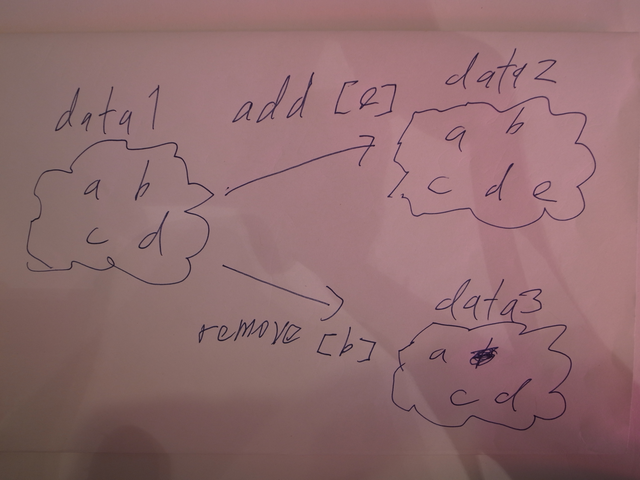 data1
a b
c d
add [e]
data2
a b
c d e
remove [b]
data3
a
c d